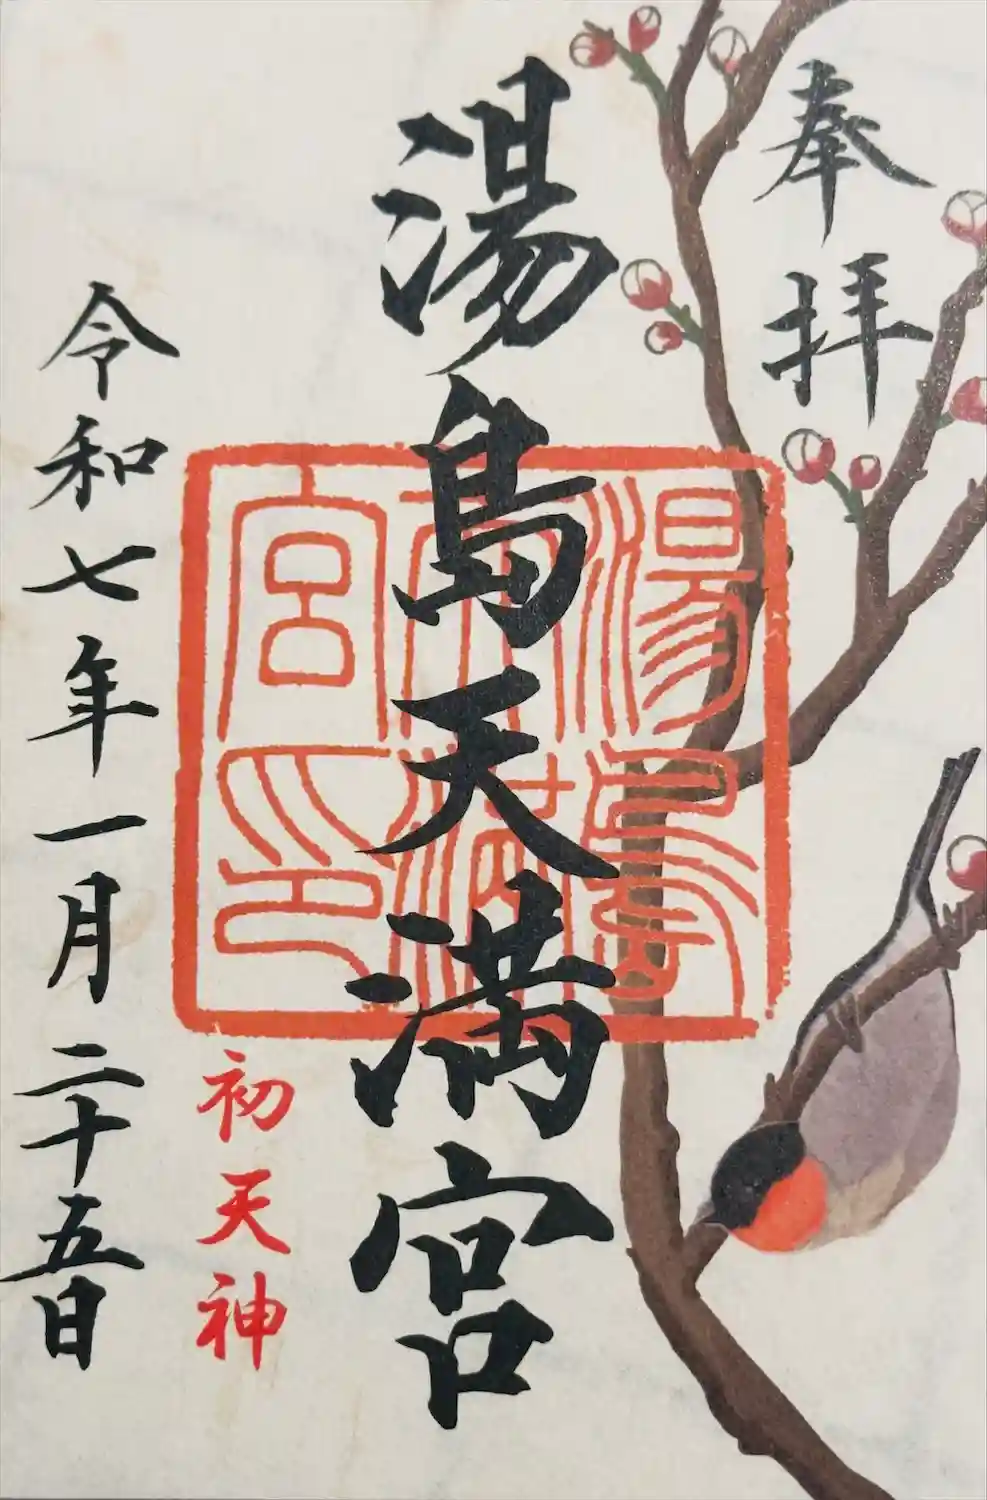 奉拝
湯島天満宮
湯島
天満
宮印
初天神
令和七年一月二十五日